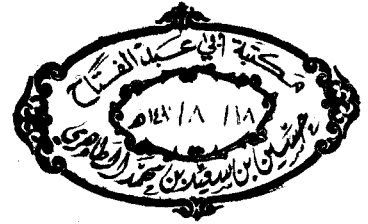 مكتبة أبي عبد الفتاح
١٨ / ٨ / ١٤٢ هـ
حسين بن سعيد بن محمد الطاهري